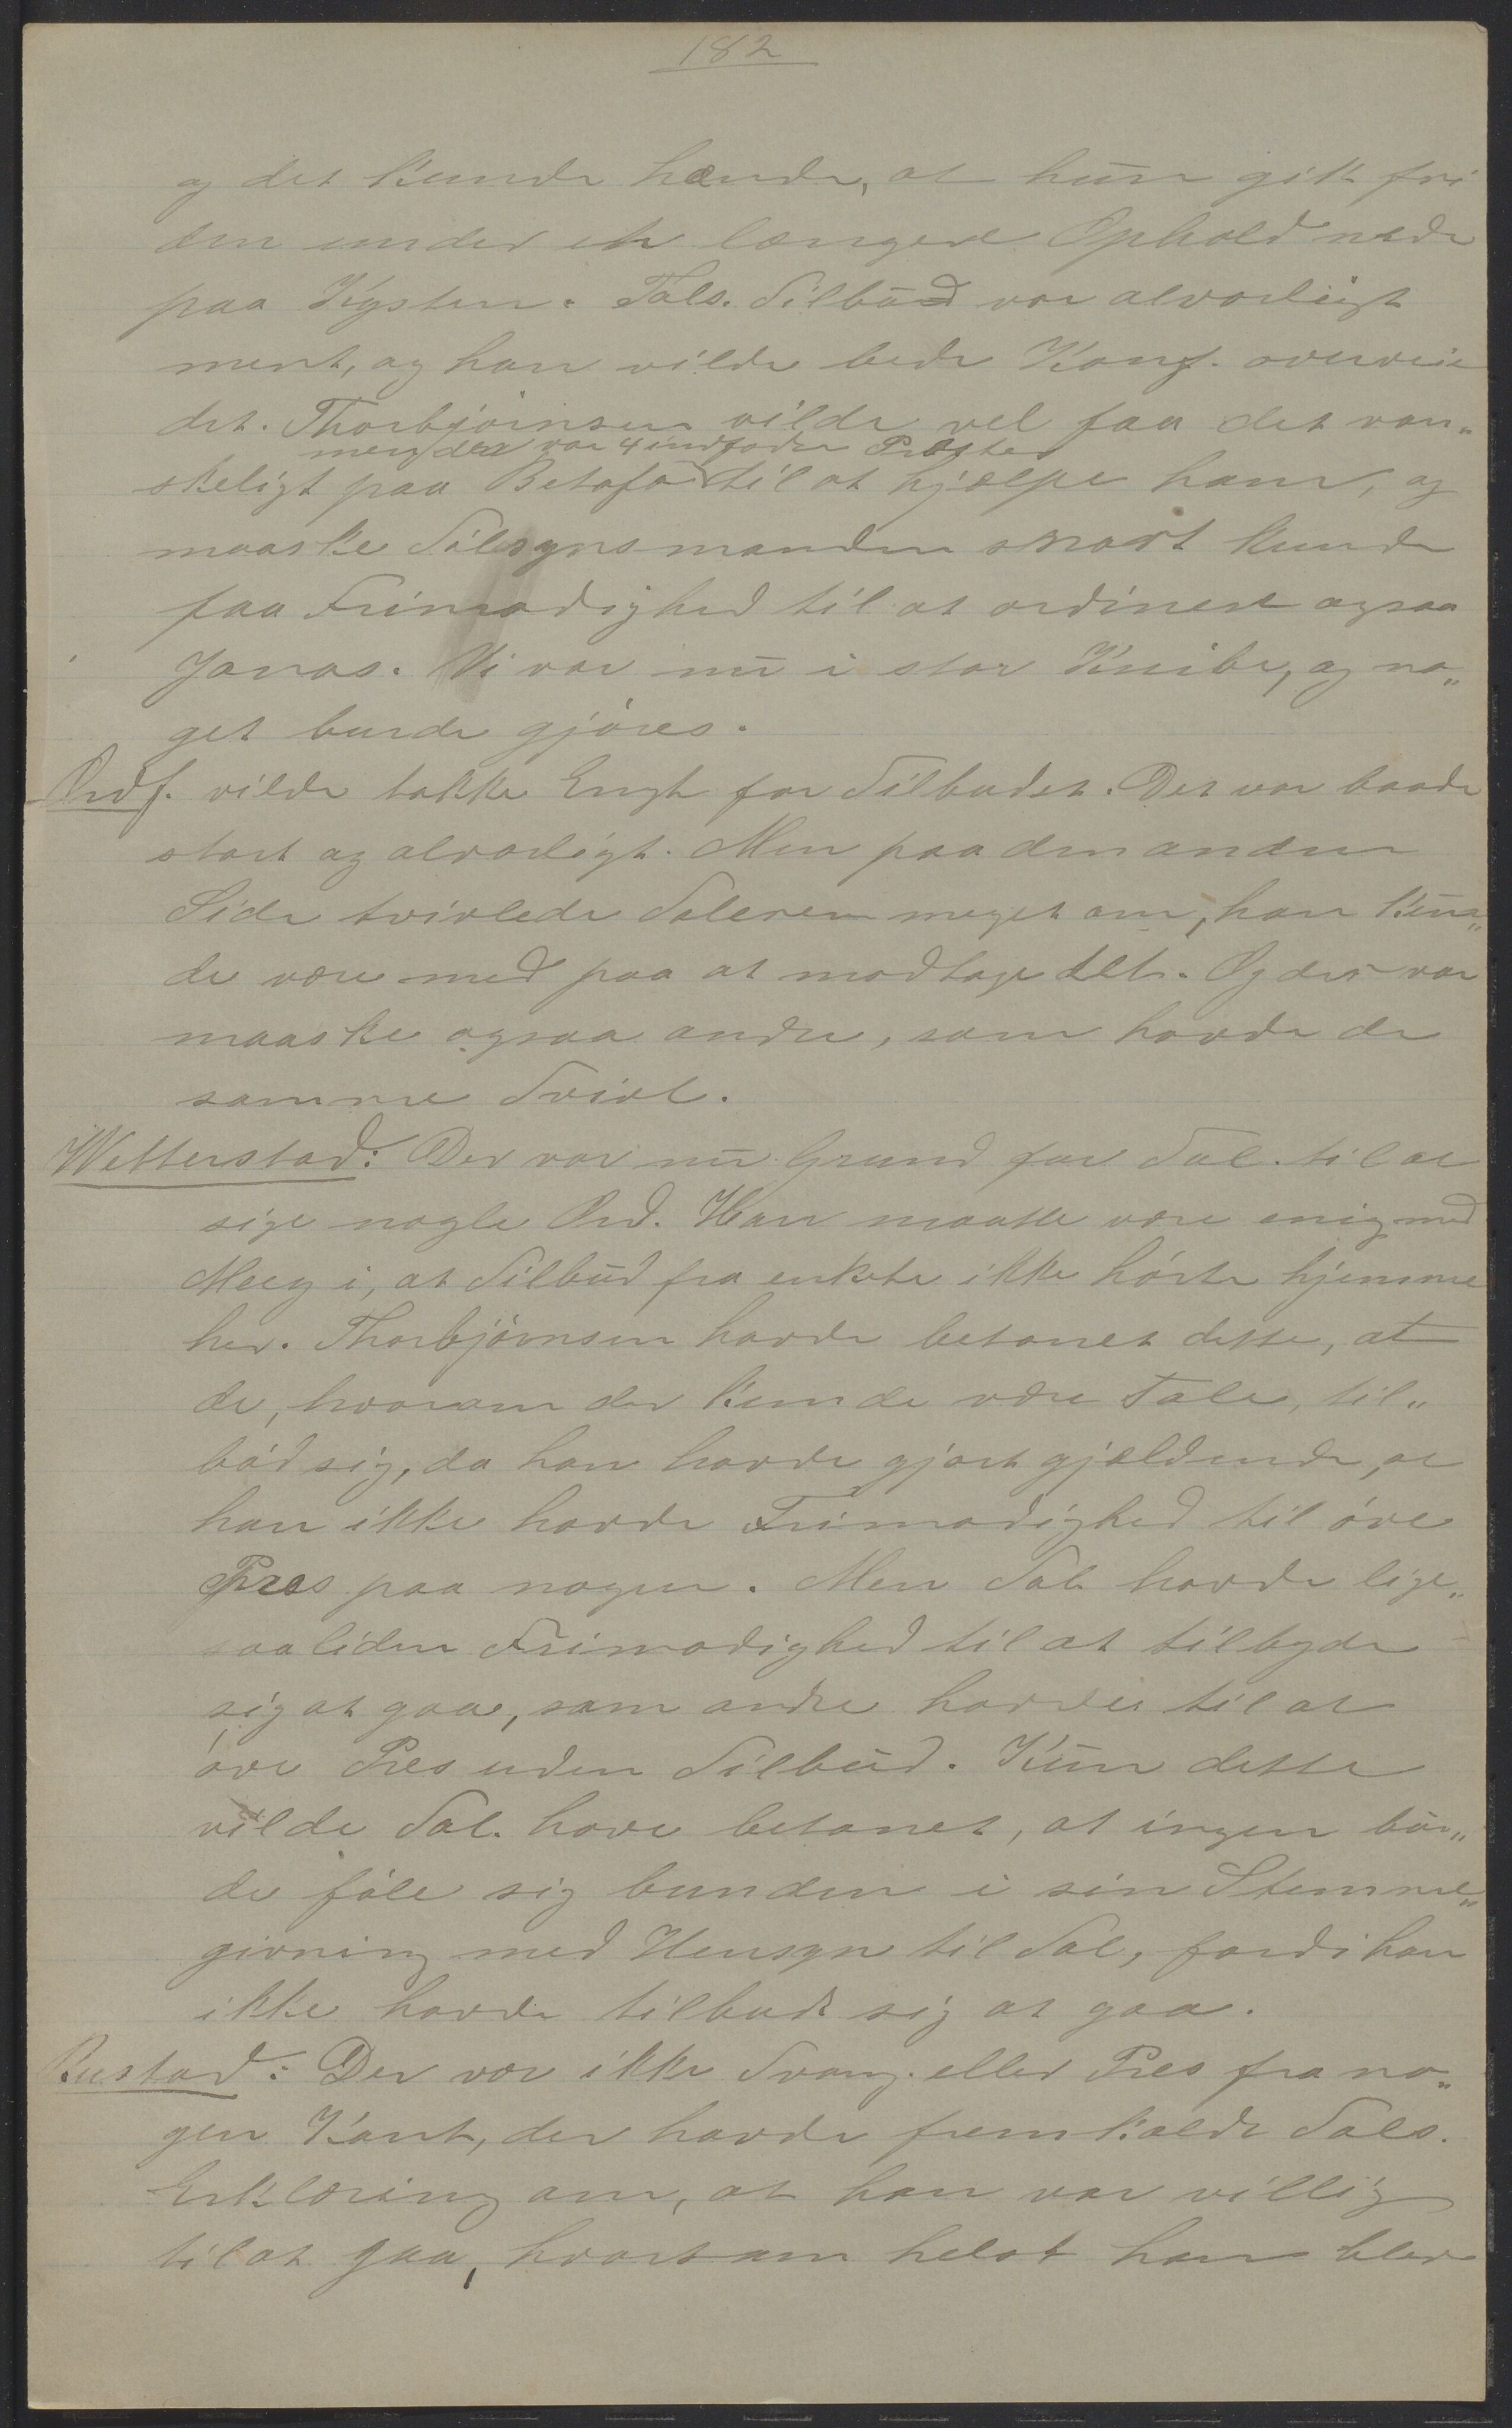 182
og det kunde hænde, at hun gik fri
den under et længere Ophold nede
paa Kysten. Tals. Tilbud var alvorligt
ment, og han vilde bede Konf. overveie
det. Thorbjörnsen vilde vel faa det van„
men der var 4 indfødte Prester
skeligt paa Betafo til at hjælpe ham, og
maaske Tilsynsmanden snart kunde
faa Frimodighed til at ordinere ogsaa
Jonas. Vi var nu i stor Knibe, og no„
get burde gjöres.
Ordf. vilde takke Engh for Tilbudet. Det var baade
stort og alvorligt. Men paa den anden
Side tvivlede Taleren meget om, han kun„
de være med paa at modtage det. Og der var
maaske ogsaa andre, som havde de
samme Tvivl.
Wetterstad: Der var nu Grund for Tal. til at
sige nogle Ord. Han maatte være enig med
Meeg i, at Tilbud fra enkelte ikke hörte hjemme
her. Thorbjörnsen havde betonet dette, at
de, hvorom der kunde være Tale, til„
böd sig, da han havde gjort gjældende, at
han ikke havde Frimodighed til öve
Pres paa nogen. Men Tal. havde lige„
saa liden Frimodighed til at tilbyde
sig at gaa, som andre havde til at
öve Pres uden Tilbud. Kun dette
vilde Tal. have betonet, at ingen bur„
de föle sig bunden i sin Stemme„
givning med Hensyn til Tal., fordi han
ikke havde tilbudt sig at gaa.
Rustad: Der var ikke Tvang eller Pres fra no„
gen Kant, der havde fremkaldt Tals.
Erklæring om, at han var villig
til at gaa, hvorsom helst han blev